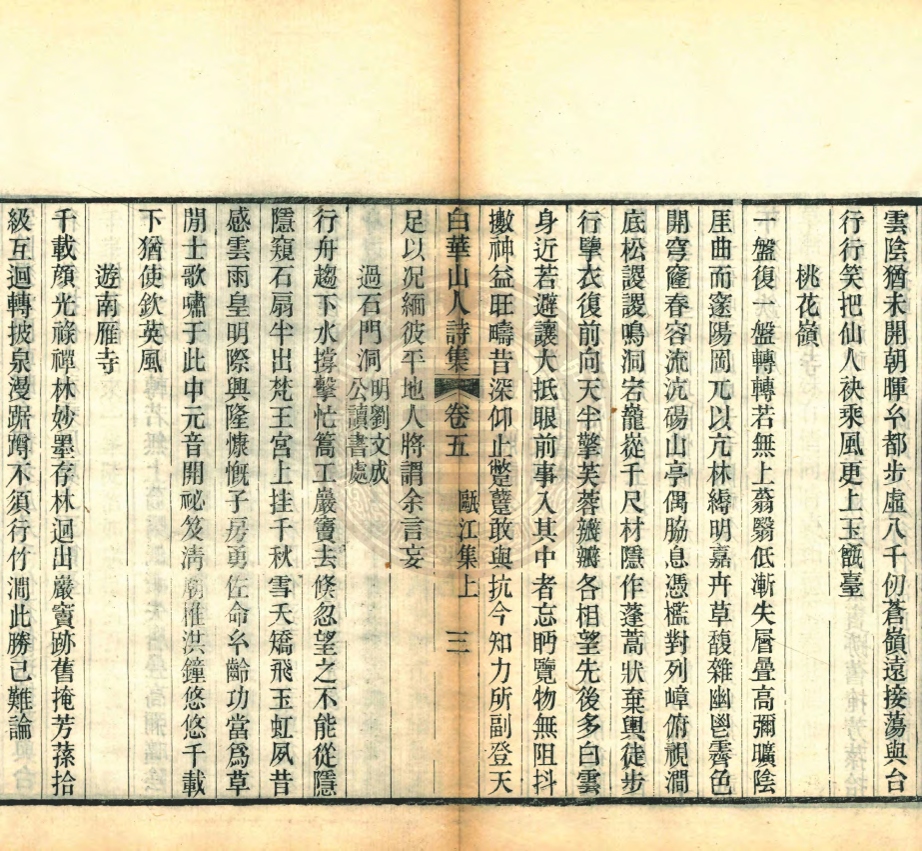 雲陰猶未開朝暉㕕都步虛八千仞蒼嶺遠接蕩與台
行行笑把仙人袂乘風更上玉甑臺
桃花嶺
一盤復一盤轉轉若無上蓊翳低漸失層疊高彌曠陰
厓曲而邃陽岡兀以亢林縟明嘉卉草馥雜幽鬯霽色
開穹窿春容流沆碭山亭偶脇息憑檻對列嶂俯視澗
底松謖謖鳴洞宕龍從千尺材隱作蓬蒿狀棄輿徒步
行搴衣復前向天半擎芙蓉瓣瓣各相望先後多白雲
身近若避讓大抵眼前事入其中者忘眄覽物無阻抖
擻神益旺疇昔深仰止蹩躠敢與抗今知力所副登天
白華山人詩集 卷五 甌江集上 三
足以况緬彼平地人將謂余言妄
過石門洞 明劉文成公讀書處
行舟趨下水撐擊忙篙工巖竇去倏忽望之不能從隱
隱窺石扇半出梵王宮上挂千秋雪夭矯飛玉虹夙昔
感雲雨皇明際興隆慷慨子房勇佐命幺齡功當爲草
閒士歌嘯于此中元音開祕笈淸廟椎洪鐘悠悠千載
下猶使欽英風
遊南雁寺
千載顏光祿禪林妙墨存林迴出巖竇跡舊掩芳蓀拾
級互迴轉披泉漫踞蹲不須行竹澗此勝已難論